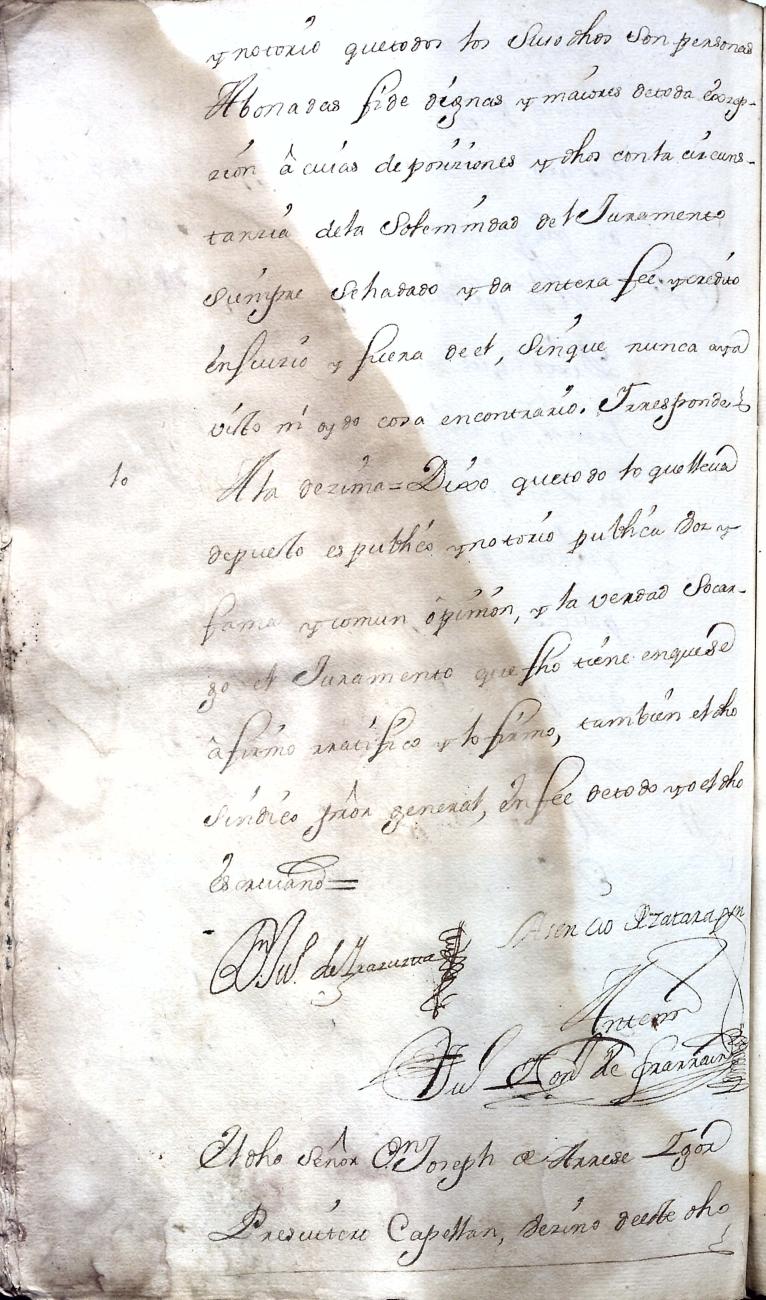 y notorio que todos los Susodhos Son personas
Abonadas fide dignas y maiores de toda excep-
zion â cuias deposiziones y dhos con la circuns-
tanzia de la Solemnidad del Juramento
Siempre Se ha dado y da entera fee y credito
en Juizio y fuera de el, Sin que nunca aya
visto ni oydo cosa en contrario. Y rresponde
10 A la dezima = Dixo que todo lo que lleua
depuesto es publico y notorio publica voz y
fama y comun opinion, y la verdad So car-
go el Juramento que fho tiene en que Se
âfirmo rratifico y lo firmo, tambien el dho
Sindico pror general, en fee de todo yo el dho
Escriuano =
Dn Jul. de Asencio Ozatarayn
Antemi
Jul de
El dho Señor Dn Joseph de Arrese Igor
Presuitero Capellan, vezino de este dho